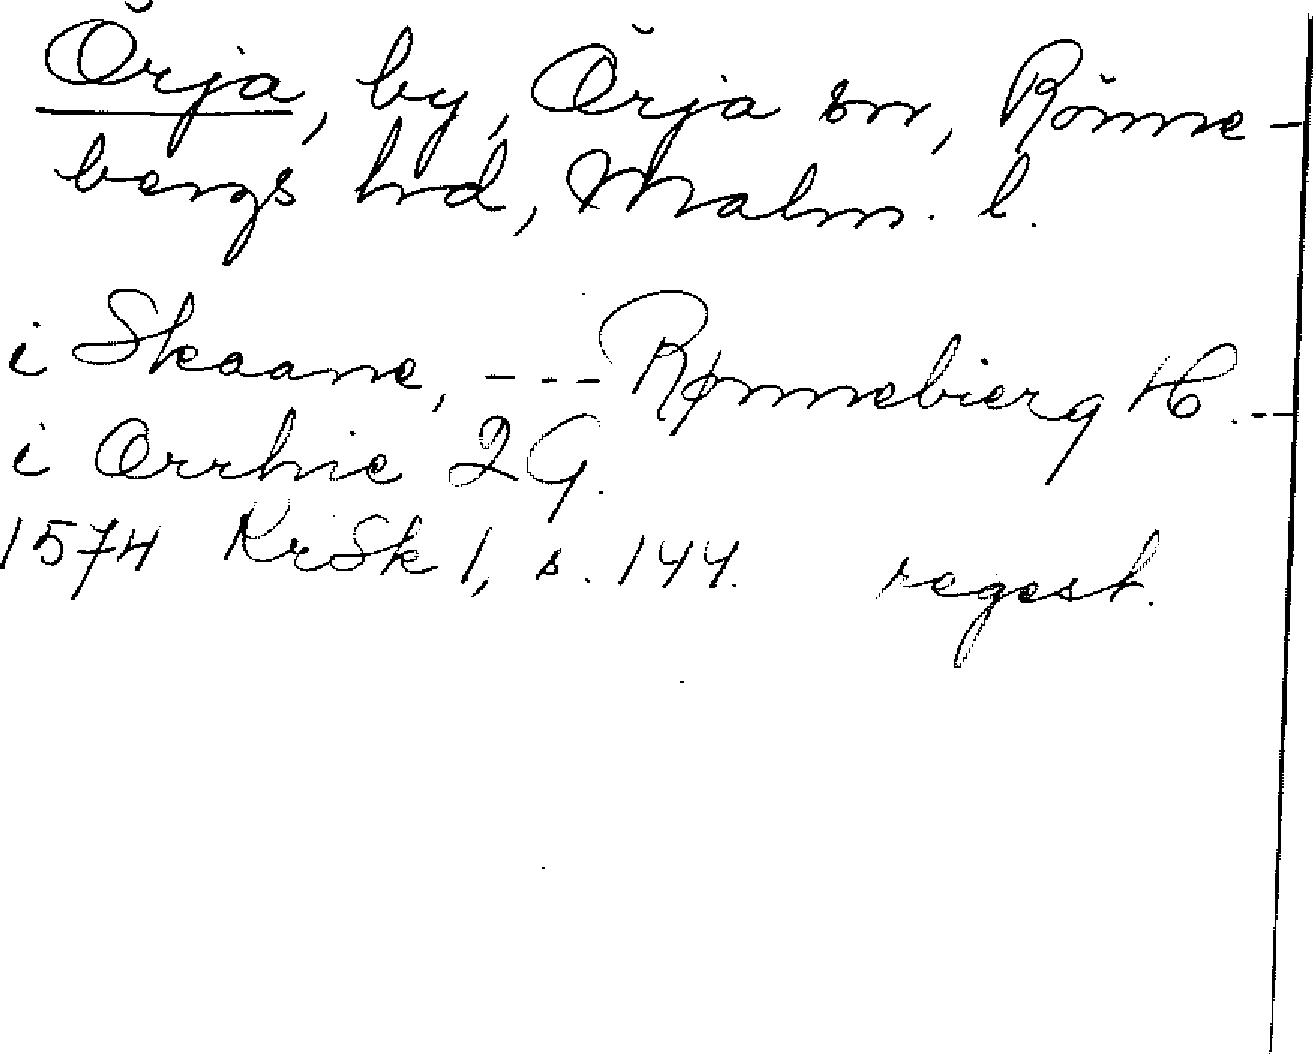 Örja, by, Örja sn, Rönne-
bergs hrd, Malm. l.
i Skaane, --- Rønnebierg H. --
i Ørrhie 2 G.
1574 KrSk 1, s. 144. regest.